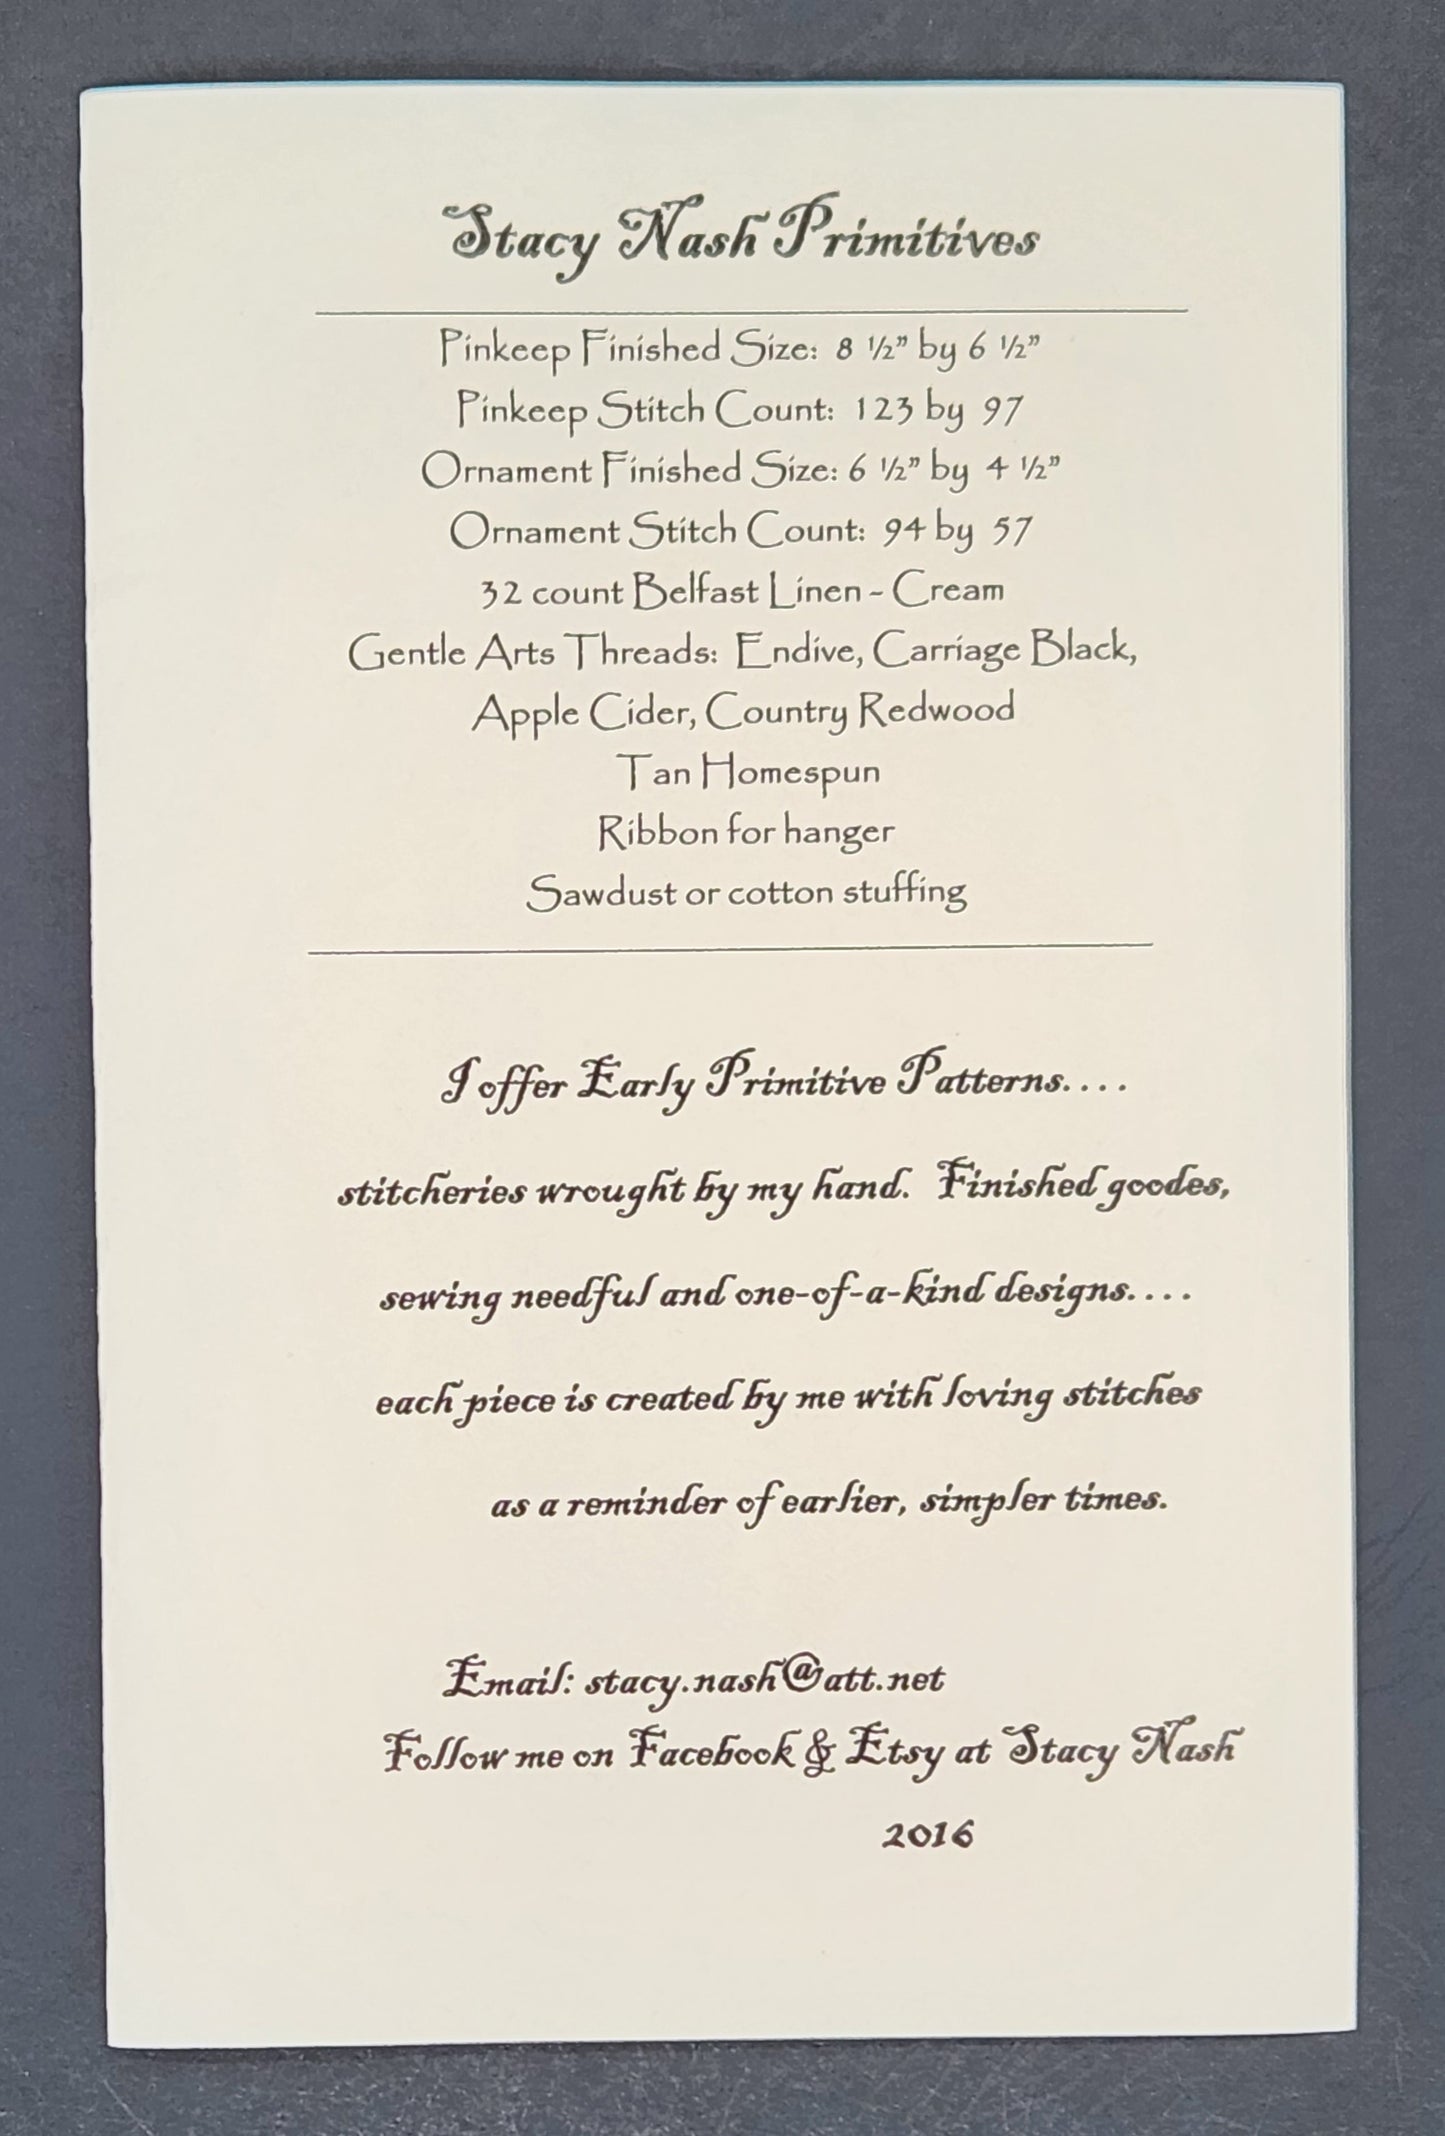 Stacy Nash Primitives
Pinkeep Finished Size: 8 ½” by 6 ½”
Pinkeep Stitch Count: 123 by 97
Ornament Finished Size: 6 ½” by 4 ½”
Ornament Stitch Count: 94 by 57
32 count Belfast Linen - Cream
Gentle Arts Threads: Endive, Carriage Black,
Apple Cider, Country Redwood
Tan Homespun
Ribbon for hanger
Sawdust or cotton stuffing
I offer Early Primitive Patterns....
stitcheries wrought by my hand. Finished goodes,
sewing needful and one-of-a-kind designs....
each piece is created by me with loving stitches
as a reminder of earlier, simpler times.
Email: stacy.nash@att.net
Follow me on Facebook & Etsy at Stacy Nash
2016